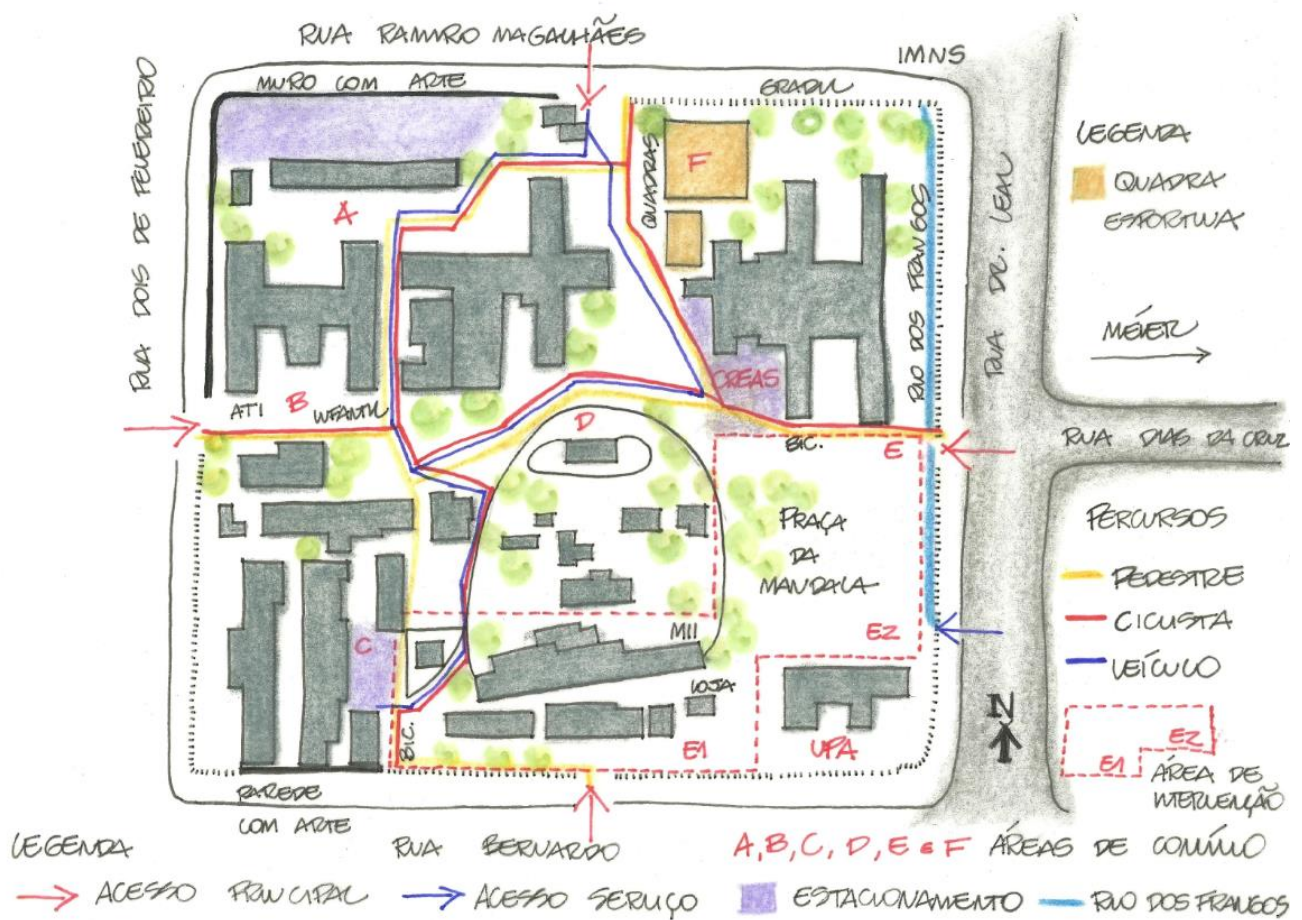 RUA RAMIRO MAGALHÃES
IMNS
MURO COM ARTE
GRADIL
RUA DOIS DE FEVEREIRO
QUADRAS
F
LEGENDA
QUADRA
ESPORTIVA
A
RIO DOS FRANGOS
RUA DR. LEAL
MÉIER
CREAS
ATI
B
INFANTIL
D
BIC.
E
RUA DIAS DA CRUZ
PRAÇA
DA
MANDALA
PERCURSOS
PEDESTRE
CICLISTA
VEÍCULO
C
MII
E2
LOJA
BIC.
E1
UPA
N
E2
E1
ÁREA DE
INTERVENÇÃO
PAREDE
COM ARTE
LEGENDA
RUA BERNARDO
A, B, C, D, E e F ÁREAS DE CONVÍVIO
ACESSO PRINCIPAL
ACESSO SERVIÇO
ESTACIONAMENTO
RIO DOS FRANGOS